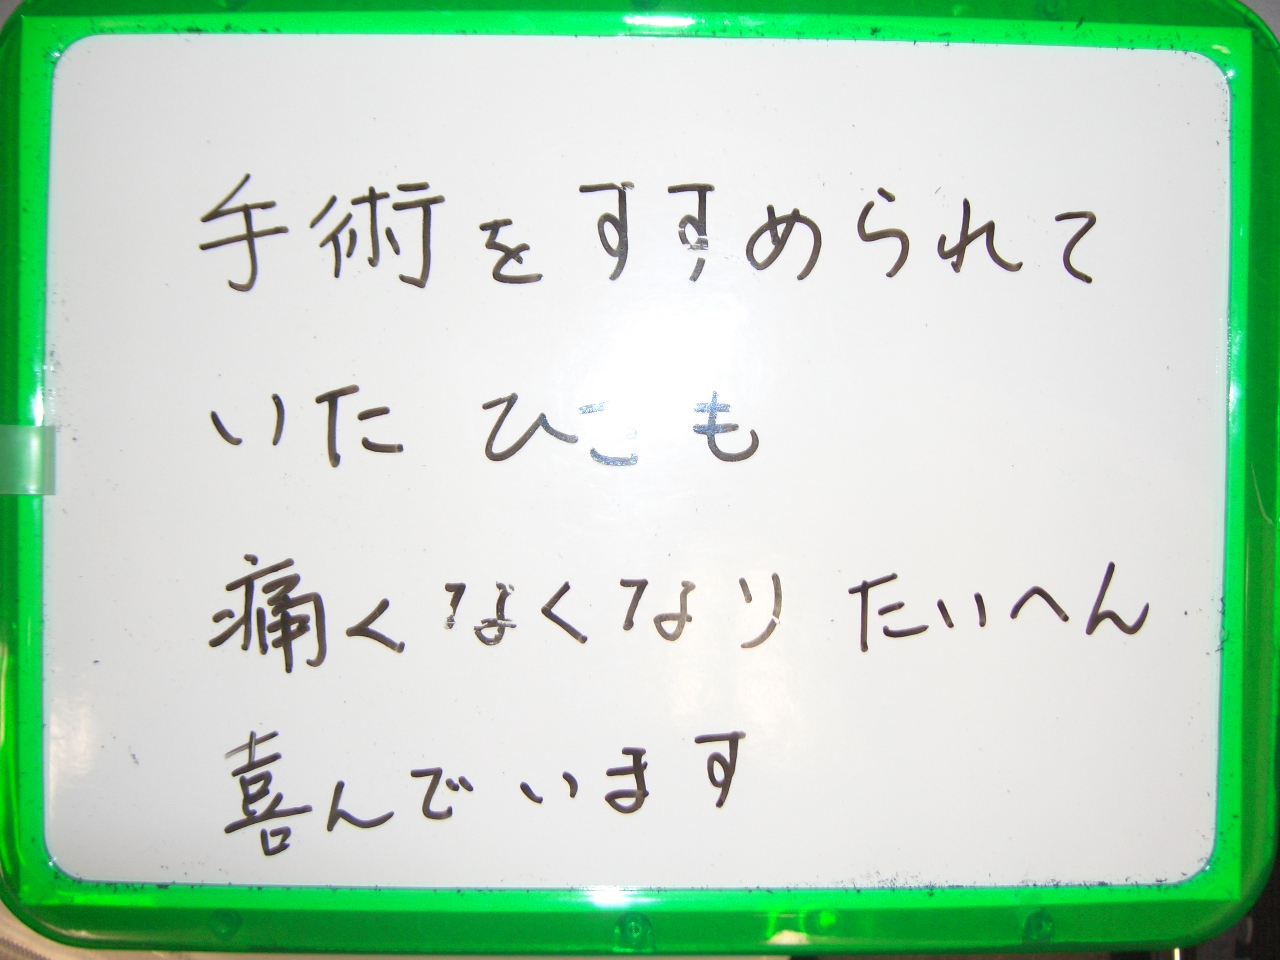 手術をすすめられて
いた ひこも
痛くなくなり たいへん
喜んでいます